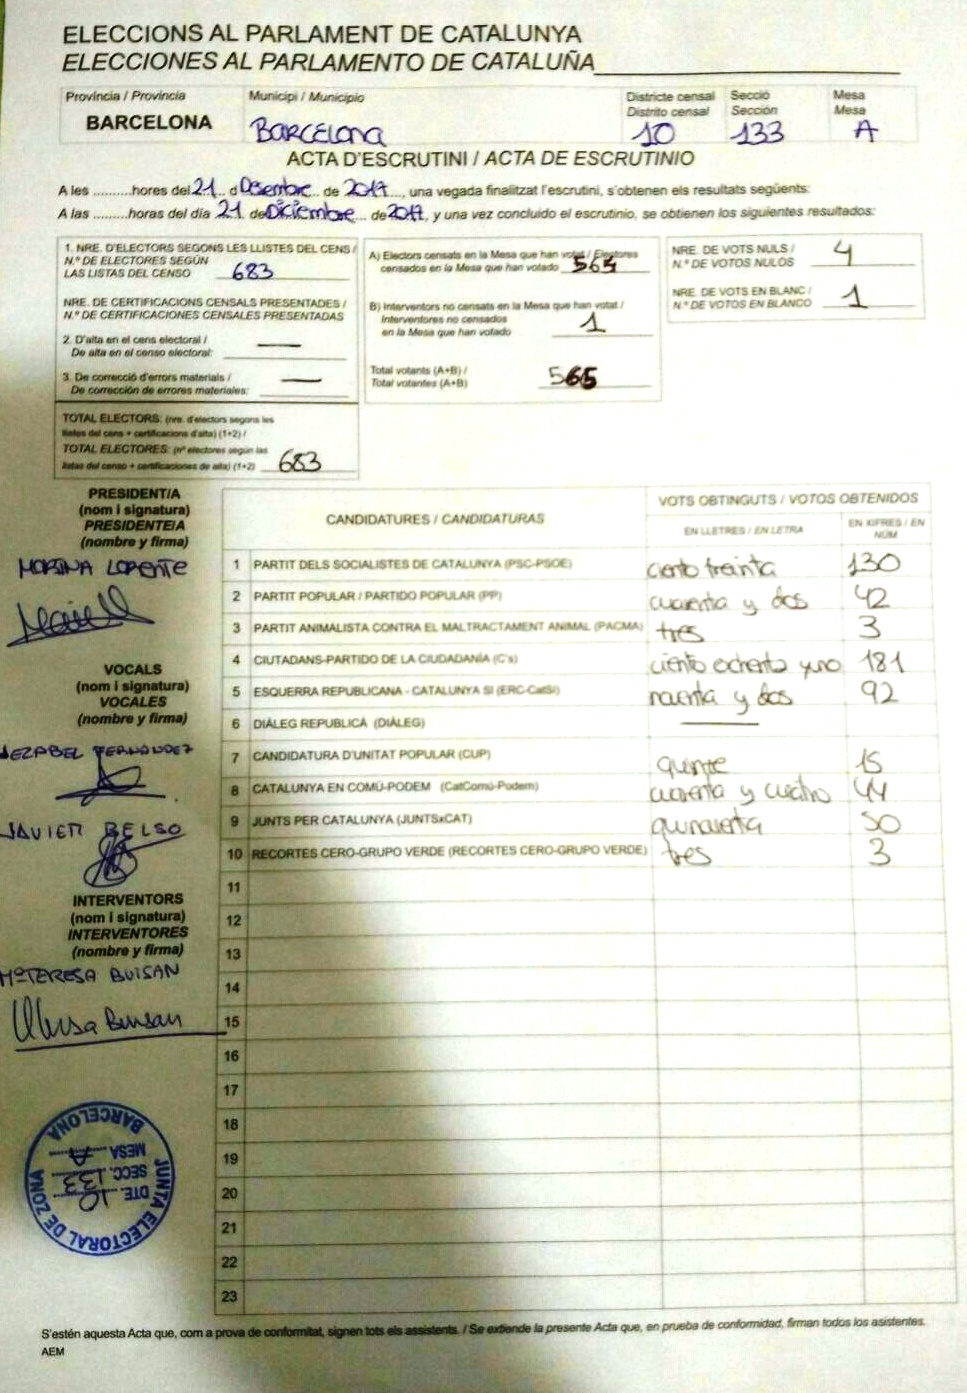 ELECCIONS AL PARLAMENT DE CATALUNYA
ELECCIONES AL PARLAMENTO DE CATALUÑA
Província / Provincia
Municipi / Municipio
Districte censal
Distrito censal
Secció
Sección
Mesa
Mesa
BARCELONA
BARCELONA
10
133
A
ACTA D'ESCRUTINI / ACTA DE ESCRUTINIO
A les ..........hores del 21 d Desembre de 2017, una vegada finalitzat l'escrutini, s'obtenen els resultats següents:
A las .........horas del día 21 de Diciembre de 2017, y una vez concluido el escrutinio, se obtienen los siguientes resultados:
1. NRE. D'ELECTORS SEGONS LES LLISTES DEL CENS /
N.º DE ELECTORES SEGÚN
LAS LISTAS DEL CENSO 683
NRE. DE CERTIFICACIONS CENSALS PRESENTADES /
N.º DE CERTIFICACIONES CENSALES PRESENTADAS
2. D'alta en el cens electoral / —
De alta en el censo electoral:
3. De correcció d'errors materials / —
De corrección de errores materiales:
TOTAL ELECTORS: (nre. d'electors segons les
llistes del cens + certificacions d'alta) (1+2) /
TOTAL ELECTORES: (nº electores según las
listas del censo + certificaciones de alta) (1+2) 683
A) Electors censats en la Mesa que han votat / Electores
censados en la Mesa que han votado 564
B) Interventors no censats en la Mesa que han votat /
Interventores no censados
en la Mesa que han votado 1
Total votants (A+B) /
Total votantes (A+B) 565
NRE. DE VOTS NULS /
N.º DE VOTOS NULOS 4
NRE. DE VOTS EN BLANC /
N.º DE VOTOS EN BLANCO 1
PRESIDENT/A
(nom i signatura)
PRESIDENTE/A
(nombre y firma)
LORENTE
VOCALS
(nom i signatura)
VOCALES
(nombre y firma)
JEZABEL FERNANDEZ
JAVIER BELSO
INTERVENTORS
(nom i signatura)
INTERVENTORES
(nombre y firma)
Mª TERESA BUISAN
CANDIDATURES / CANDIDATURAS
VOTS OBTINGUTS / VOTOS OBTENIDOS
EN LLETRES / EN LETRA
EN XIFRES / EN NÚM
1 PARTIT DELS SOCIALISTES DE CATALUNYA (PSC-PSOE) ciento treinta 130
2 PARTIT POPULAR / PARTIDO POPULAR (PP) cuarenta y dos 42
3 PARTIT ANIMALISTA CONTRA EL MALTRACTAMENT ANIMAL (PACMA) tres 3
4 CIUTADANS-PARTIDO DE LA CIUDADANÍA (C's) ciento ochenta y uno 181
5 ESQUERRA REPUBLICANA - CATALUNYA SÍ (ERC-CatSí) noventa y dos 92
6 DIÀLEG REPUBLICÀ (DIÀLEG) —
7 CANDIDATURA D'UNITAT POPULAR (CUP) quince 15
8 CATALUNYA EN COMÚ-PODEM (CatComú-Podem) cuarenta y cuatro 44
9 JUNTS PER CATALUNYA (JUNTSxCAT) 50
10 RECORTES CERO-GRUPO VERDE (RECORTES CERO-GRUPO VERDE) tres 3
11
12
13
14
15
16
17
18
19
20
21
22
23
JUNTA ELECTORAL DE ZONA
DTE. 10
SECC. 133
MESA A
BARCELONA
S'estén aquesta Acta que, com a prova de conformitat, signen tots els assistents. / Se extiende la presente Acta que, en prueba de conformidad, firman todos los asistentes.
AEM